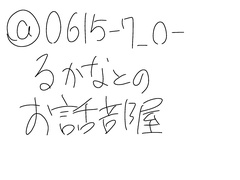 @0615-7_0-
るかなとの
お話部屋